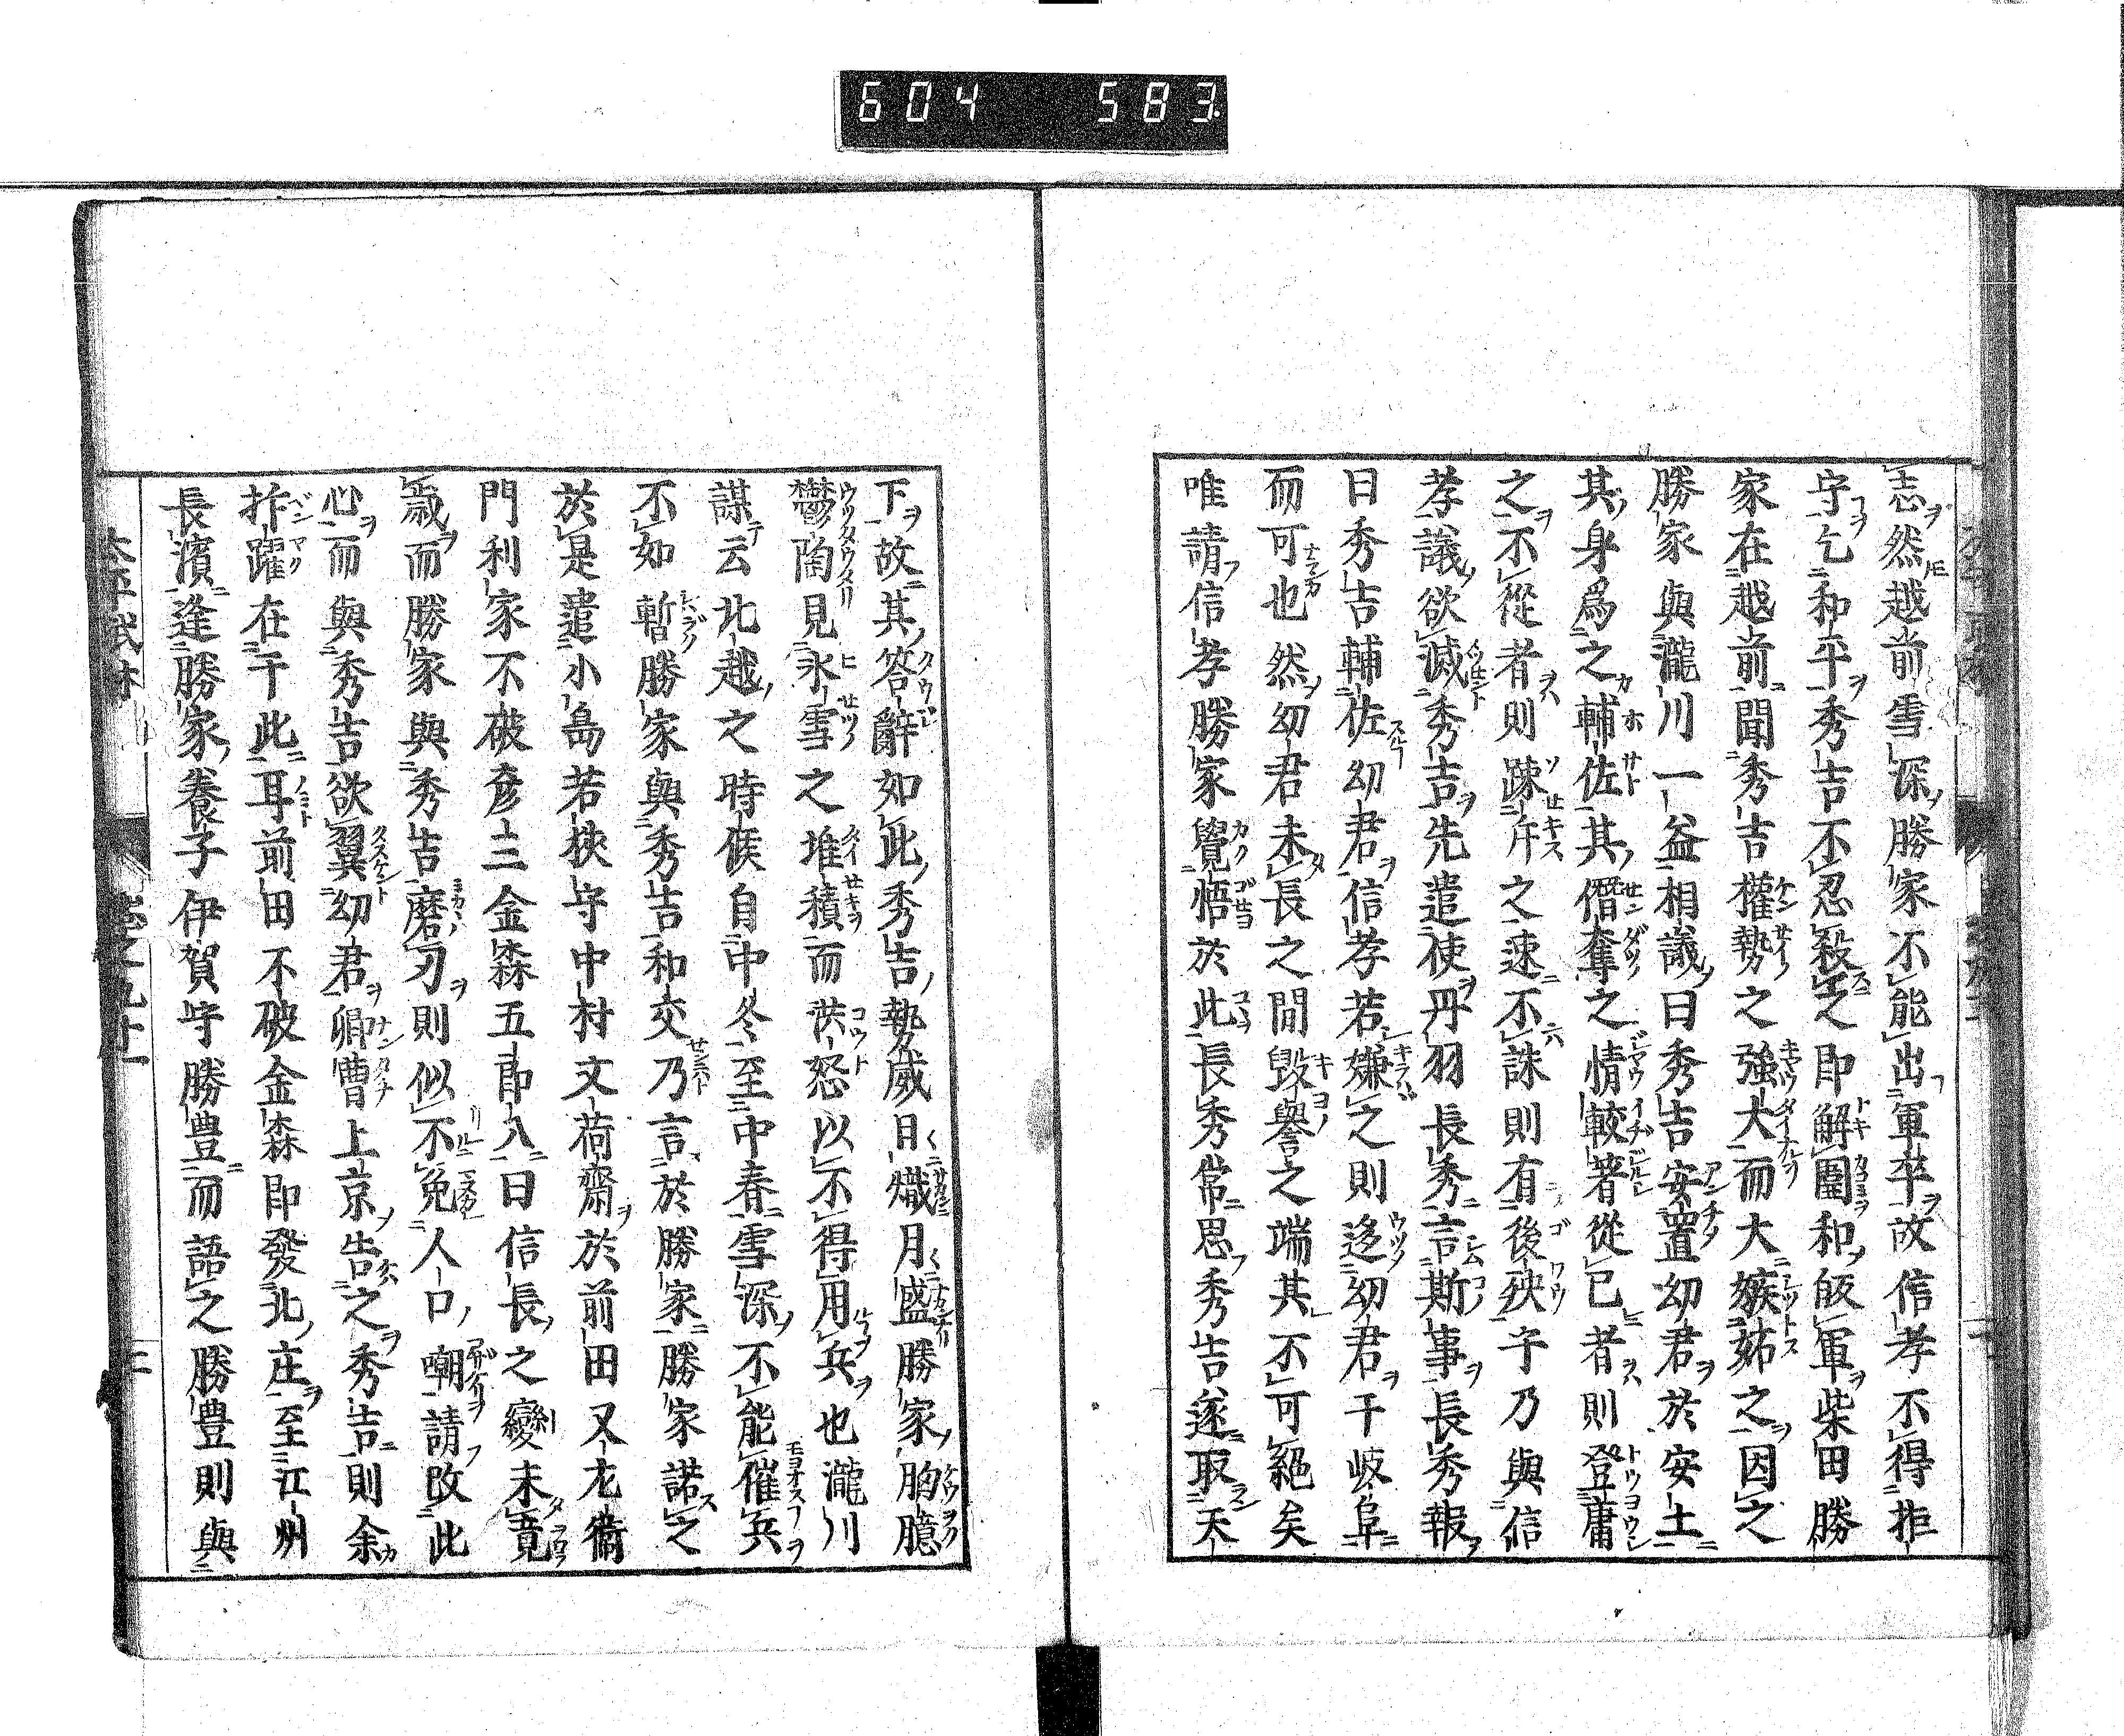 604 583
志然越前雪深勝家不能出軍卒故信孝不得拒
守乞和平秀吉不忍殺之即解圍和皈軍柴田勝
家在越前聞秀吉權勢之強大而大嫉妬之因之
勝家與瀧川一益相議曰秀吉安置幼君於安土
其身爲之輔佐其僭奪之情較著從已者則登庸
之不從者則踈斥之速不誅則有後殃予乃與信
孝議欲滅秀吉先遣使丹羽長秀言斯事長秀報
曰秀吉輔佐幼君信孝若嫌之則迻幼君于岐阜
而可也然幼君未長之間毀譽之端其不可絕矣
唯請信孝勝家覺悟於此長秀常思秀吉遂取天
下故其答辭如此秀吉勢威日熾月盛勝家胸臆
鬱陶見氷雪之堆積而洪怒以不得用兵也瀧川
謀云北越之時候自中冬至中春雪深不能催兵
不如暫勝家與秀吉和交乃言於勝家勝家諾之
於是遣小島若狹守中村文荷齋於前田又左衞
門利家不破彦三金森五郎八曰信長之變未竟
歲而勝家與秀吉磨刃則似不免人口嘲請改此
心而與秀吉欲翼幼君卿曹上京告之秀吉則余
抃躍在于此耳前田不破金森即發北庄至江州
長濱逢勝家養子伊賀守勝豊而語之勝豊則與
太平武林